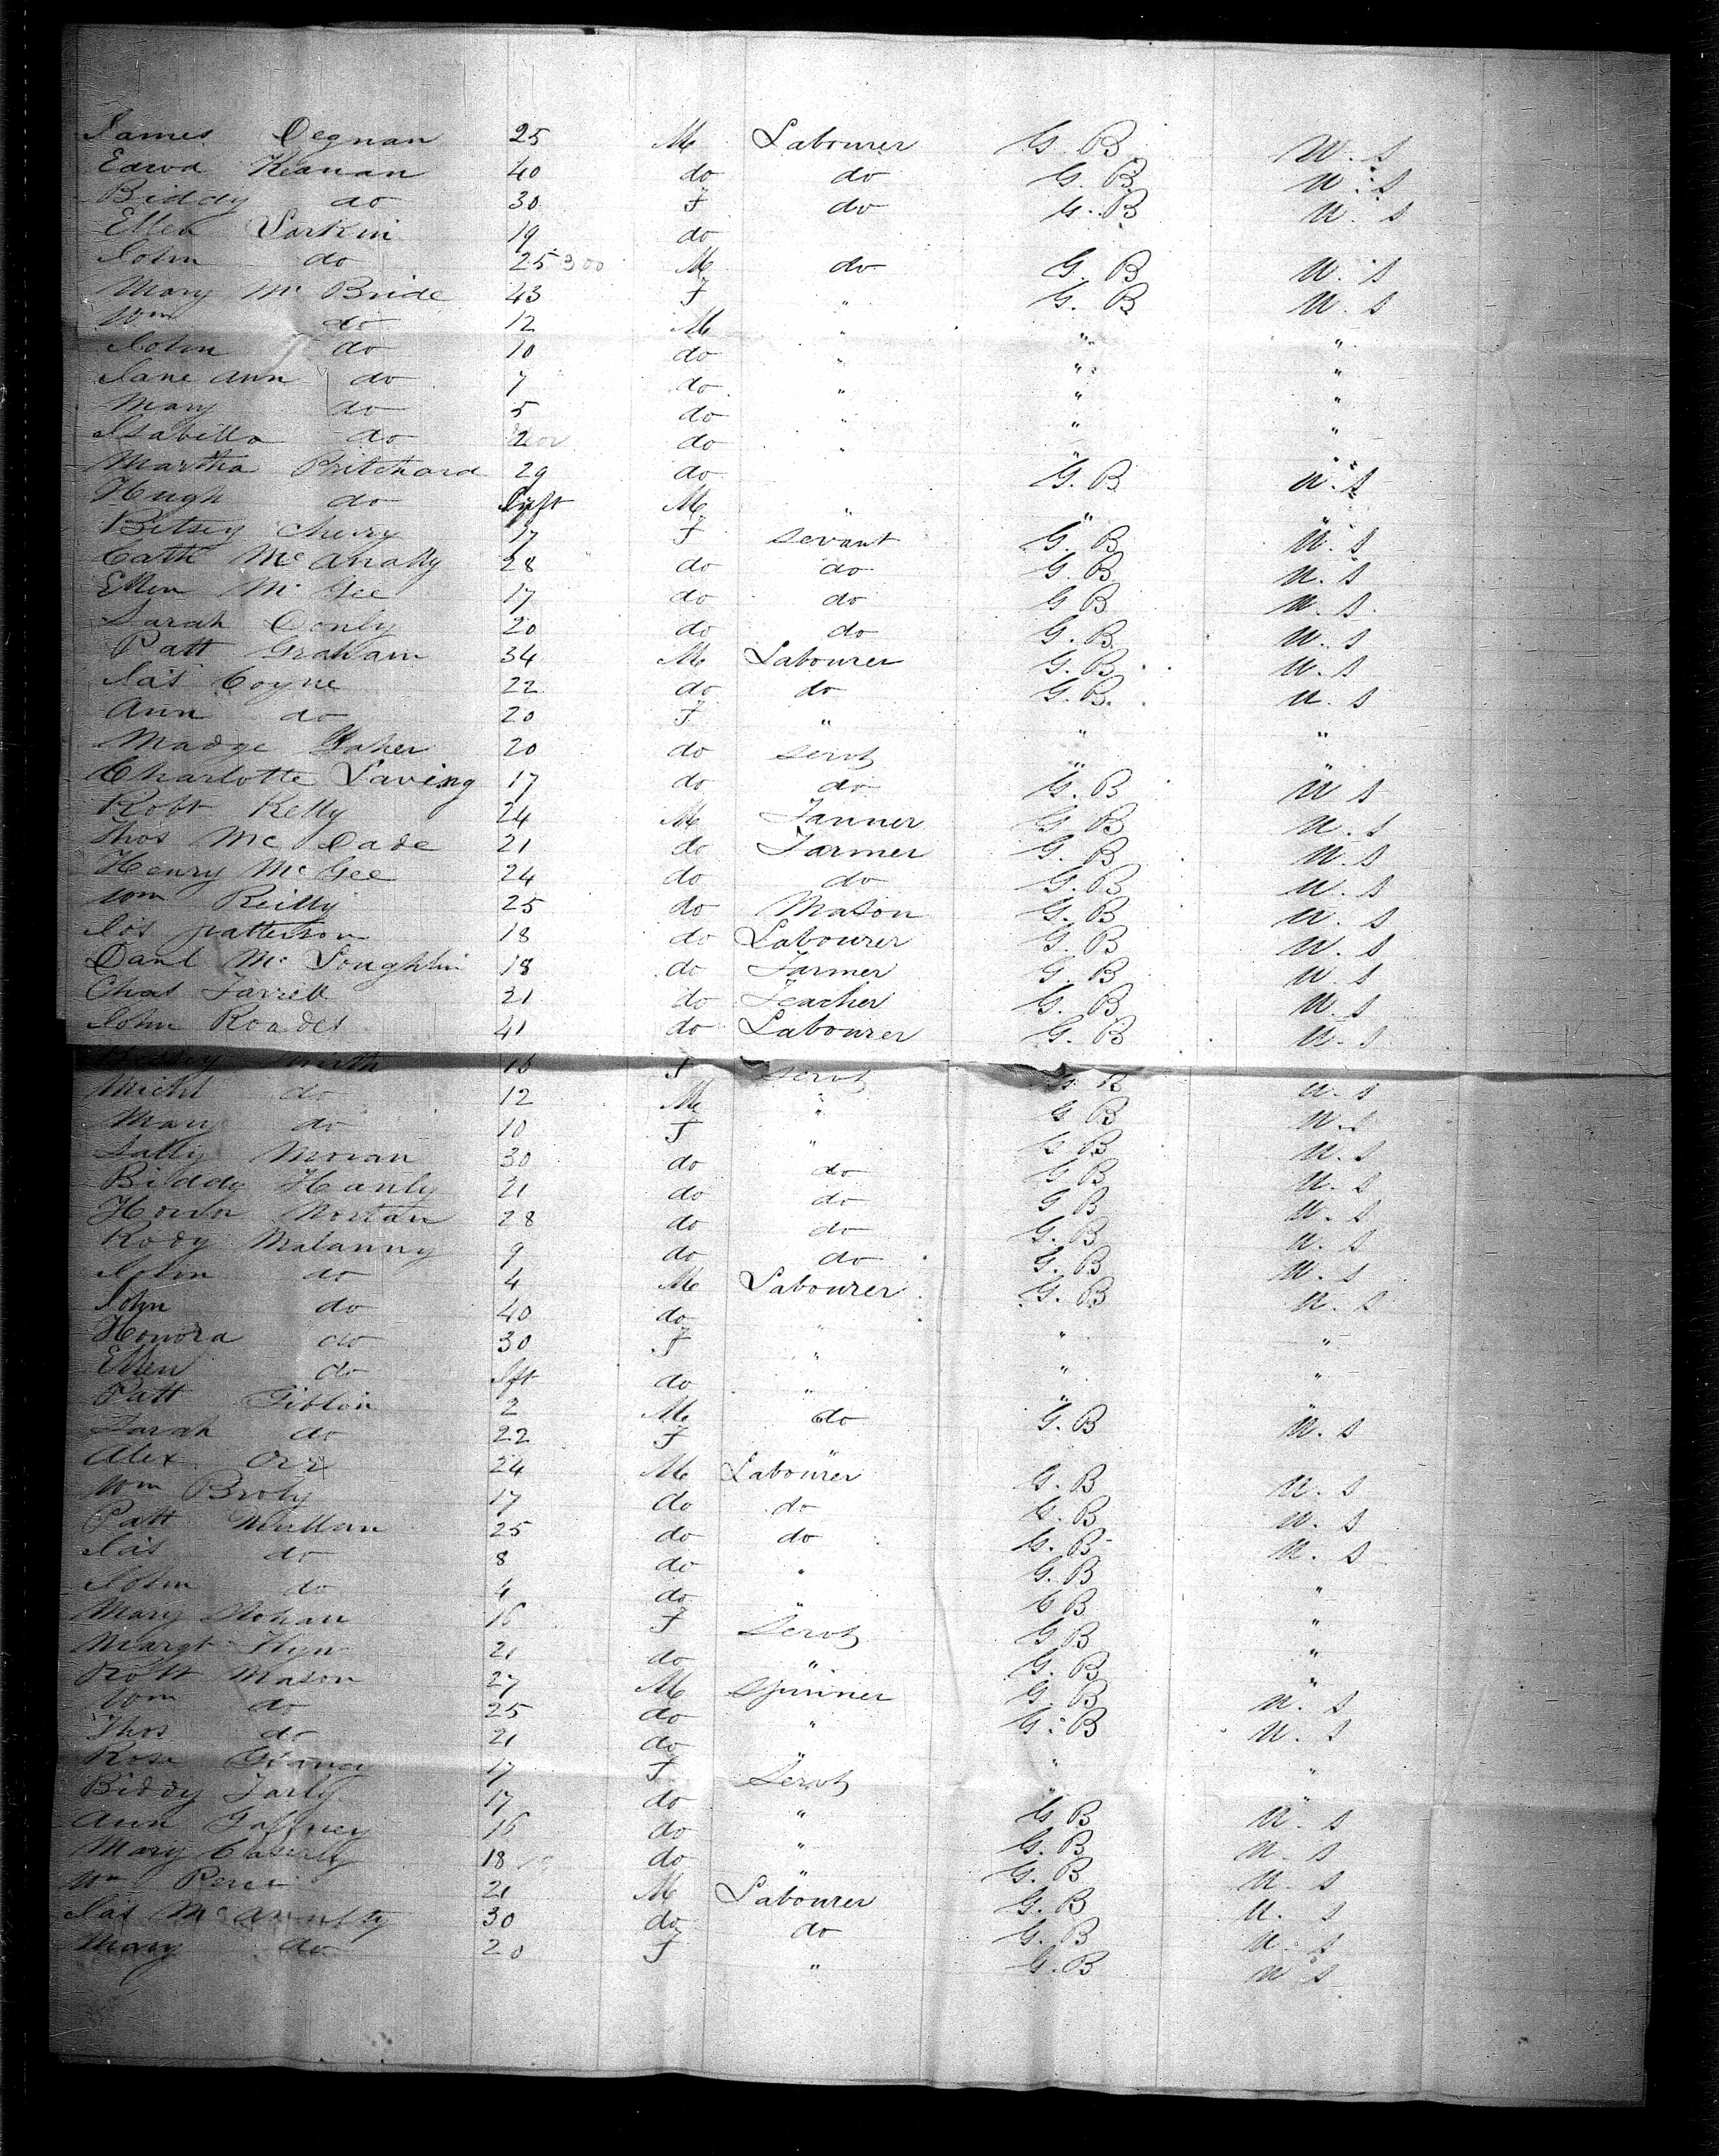 James Degnan 25 M Labourer G. B U. S
Edwd Keanan 40 do do G. B U. S
Biddy do 30 F do G. B U. S
Ellen Larkin 19 do
John do 25 300 M do G. B U. S
Mary Mc Bride 43 F " G. B U. S
Wm do 12 M " " "
John do 10 do " " "
Jane Ann do 7 do " " "
Mary do 5 do " " "
Isabella do 2 do " " "
Martha Pritchard 29 do G. B U. S
Hugh do Inft M " " "
Betsey Cherry 17 F Servant G. B U. S
Cath Mc Anally 28 do do G. B U. S
Ellen Mc Gee 17 do do G B U. S
Sarah Donly 20 do do G. B. U. S
Patt Graham 34 M Labourer G. B. U. S
Jas Coyne 22 do do G. B. U. S
Ann do 20 F " " "
Madge 20 do Servt " "
Charlotte Laving 17 do do G. B U S
Robt Kelly 24 M Tanner G B U. S
Thos Mc Dade 21 do Farmer G. B U. S
Henry Mc Gee 24 do do G. B U. S
Wm Reilly 25 do Mason G. B U. S
Jos patterson 18 do Labourer G. B U. S
Danl Mc Loughlin 18 do Farmer G. B U. S
Chas Farrell 21 do Teacher G. B U. S
John Roades 41 do Labourer G. B U. S
Smith 18 F Servt G B U. S
Michl do 12 M " G B U. S
Mary do 10 F " G B U. S
Sally Moran 30 do do G B U. S
Biddy Hanly 21 do do G B U. S
Honor Nortan 28 do do G. B U. S
Rody Malanny 9 do do G. B U. S
John do 4 M Labourer G. B U. S
John do 40 do "
Honora do 30 F " " "
Ellen do Ift do " " "
Patt Giblin 2 M do G. B U. S
Sarah do 22 F "
Alex Orr 24 M Labourer G. B U. S
Wm Broly 17 do do G. B U. S
Patt Mullan 25 do do G. B U. S
Jas do 8 do " G. B "
John do 4 do " G B "
Mary 16 F Servt G B "
Margt Flyn 21 do " G. B "
Robt Mason 27 M Spinner G. B U. S
Wm do 25 do " G. B U. S
Thos do 21 do " " "
Rose 17 F Servt " "
Biddy Farly 17 do " G B U. S
Ann Gaffney 16 do " G. B U. S
Mary Caserly 18 do " G. B U. S
Wm 21 M Labourer G. B U. S
Jas Mc Anulty 30 do do G. B U. S
Mary do 20 F " G. B U S